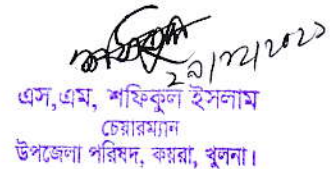 ২৯/১২/২০২১
এস,এম, শফিকুল ইসলাম
চেয়ারম্যান
উপজেলা পরিষদ, কয়রা, খুলনা।